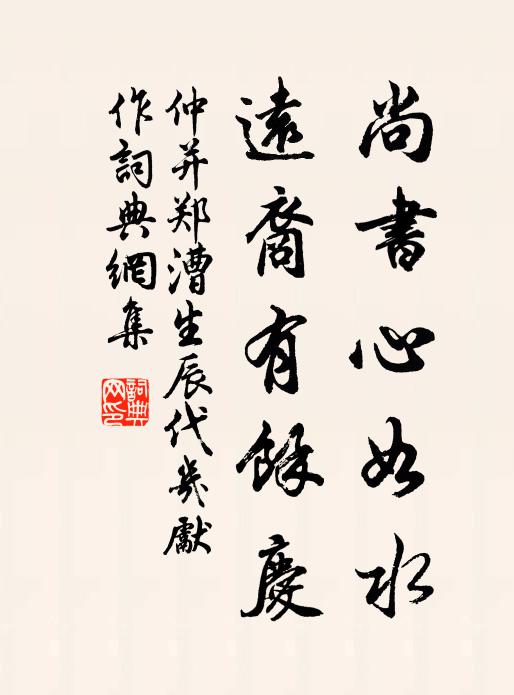 尚書心如水
遠裔有餘慶
仲并郑漕生辰代幾獻
作詞典網集
詞典網印